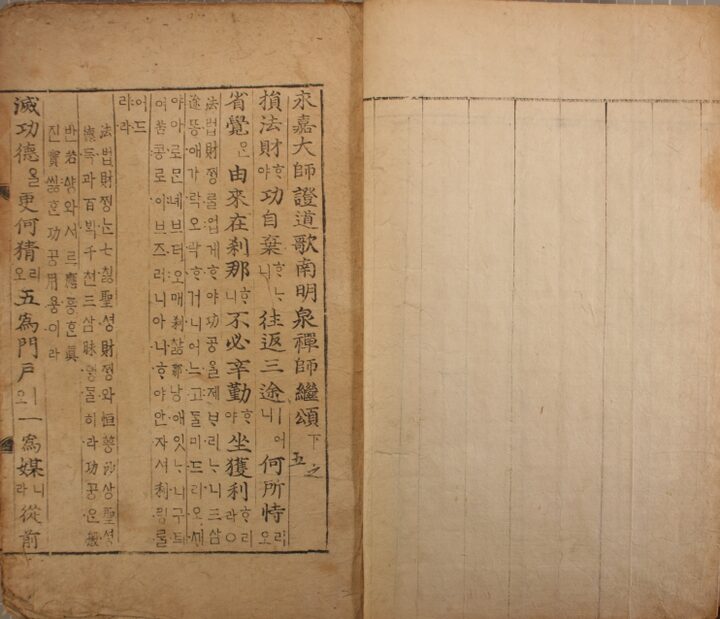 永嘉大師證道歌南明泉禪師繼頌 下之五
損法財ᄒᆞ야功自棄ᄒᆞᄂᆞ니往返三途ㅣ어니何所恃리오
省覺ᄆᆞᆫ由來在刹那ᄒᆞ니不必辛勤ᄒᆞ야坐獲利ᄒᆞ리라○
法법財ᄍᆡᆼᄅᆞᆯ업게ᄒᆞ야功공ᄋᆞᆯ제ᄇᆞ리ᄂᆞ니三삼
途똥애가락오락ᄒᆞ거니어느고ᄃᆞᆯ미드리오
야아로ᄆᆞᆫ녜브터오매刹찷那낭애잇ᄂᆞ니구틔
로이브즈러니아니ᄒᆞ야안자셔利링ᄅᆞᆯ
어드
리라
法법財ᄍᆡᆼᄂᆞᆫ七칧聖셩財ᄍᆡᆼ와恒ᅘᅳᆼ沙상聖셩
德득과百ᄇᆡᆨ千쳔三삼昧ᄆᆡᆼᄃᆞᆯ히라功공ᄋᆞᆫ般
반若ᅀᅣᆼ와서르應ᅙᅳᆼᄒᆞᆫ眞
진實씷ᄒᆞᆫ功공用용이라
滅功德ᄋᆞᆯ更何猜리오五爲門戶ㅣ오一爲媒니라從前